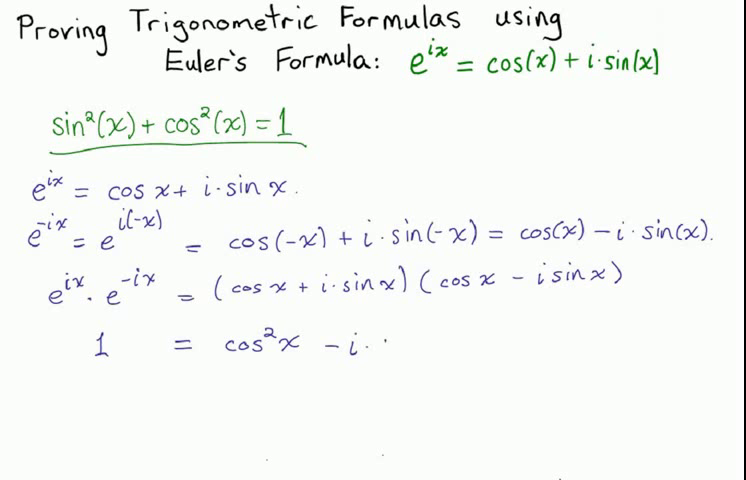 Proving Trigonometric Formulas using
Euler's Formula: e^{ix} = cos(x) + i·sin(x)
sin²(x) + cos²(x) = 1
e^{ix} = cos x + i·sin x.
e^{-ix} = e^{i(-x)} = cos(-x) + i·sin(-x) = cos(x) - i·sin(x).
e^{ix}·e^{-ix} = (cos x + i·sin x)(cos x - i sin x)
1 = cos²x - i·